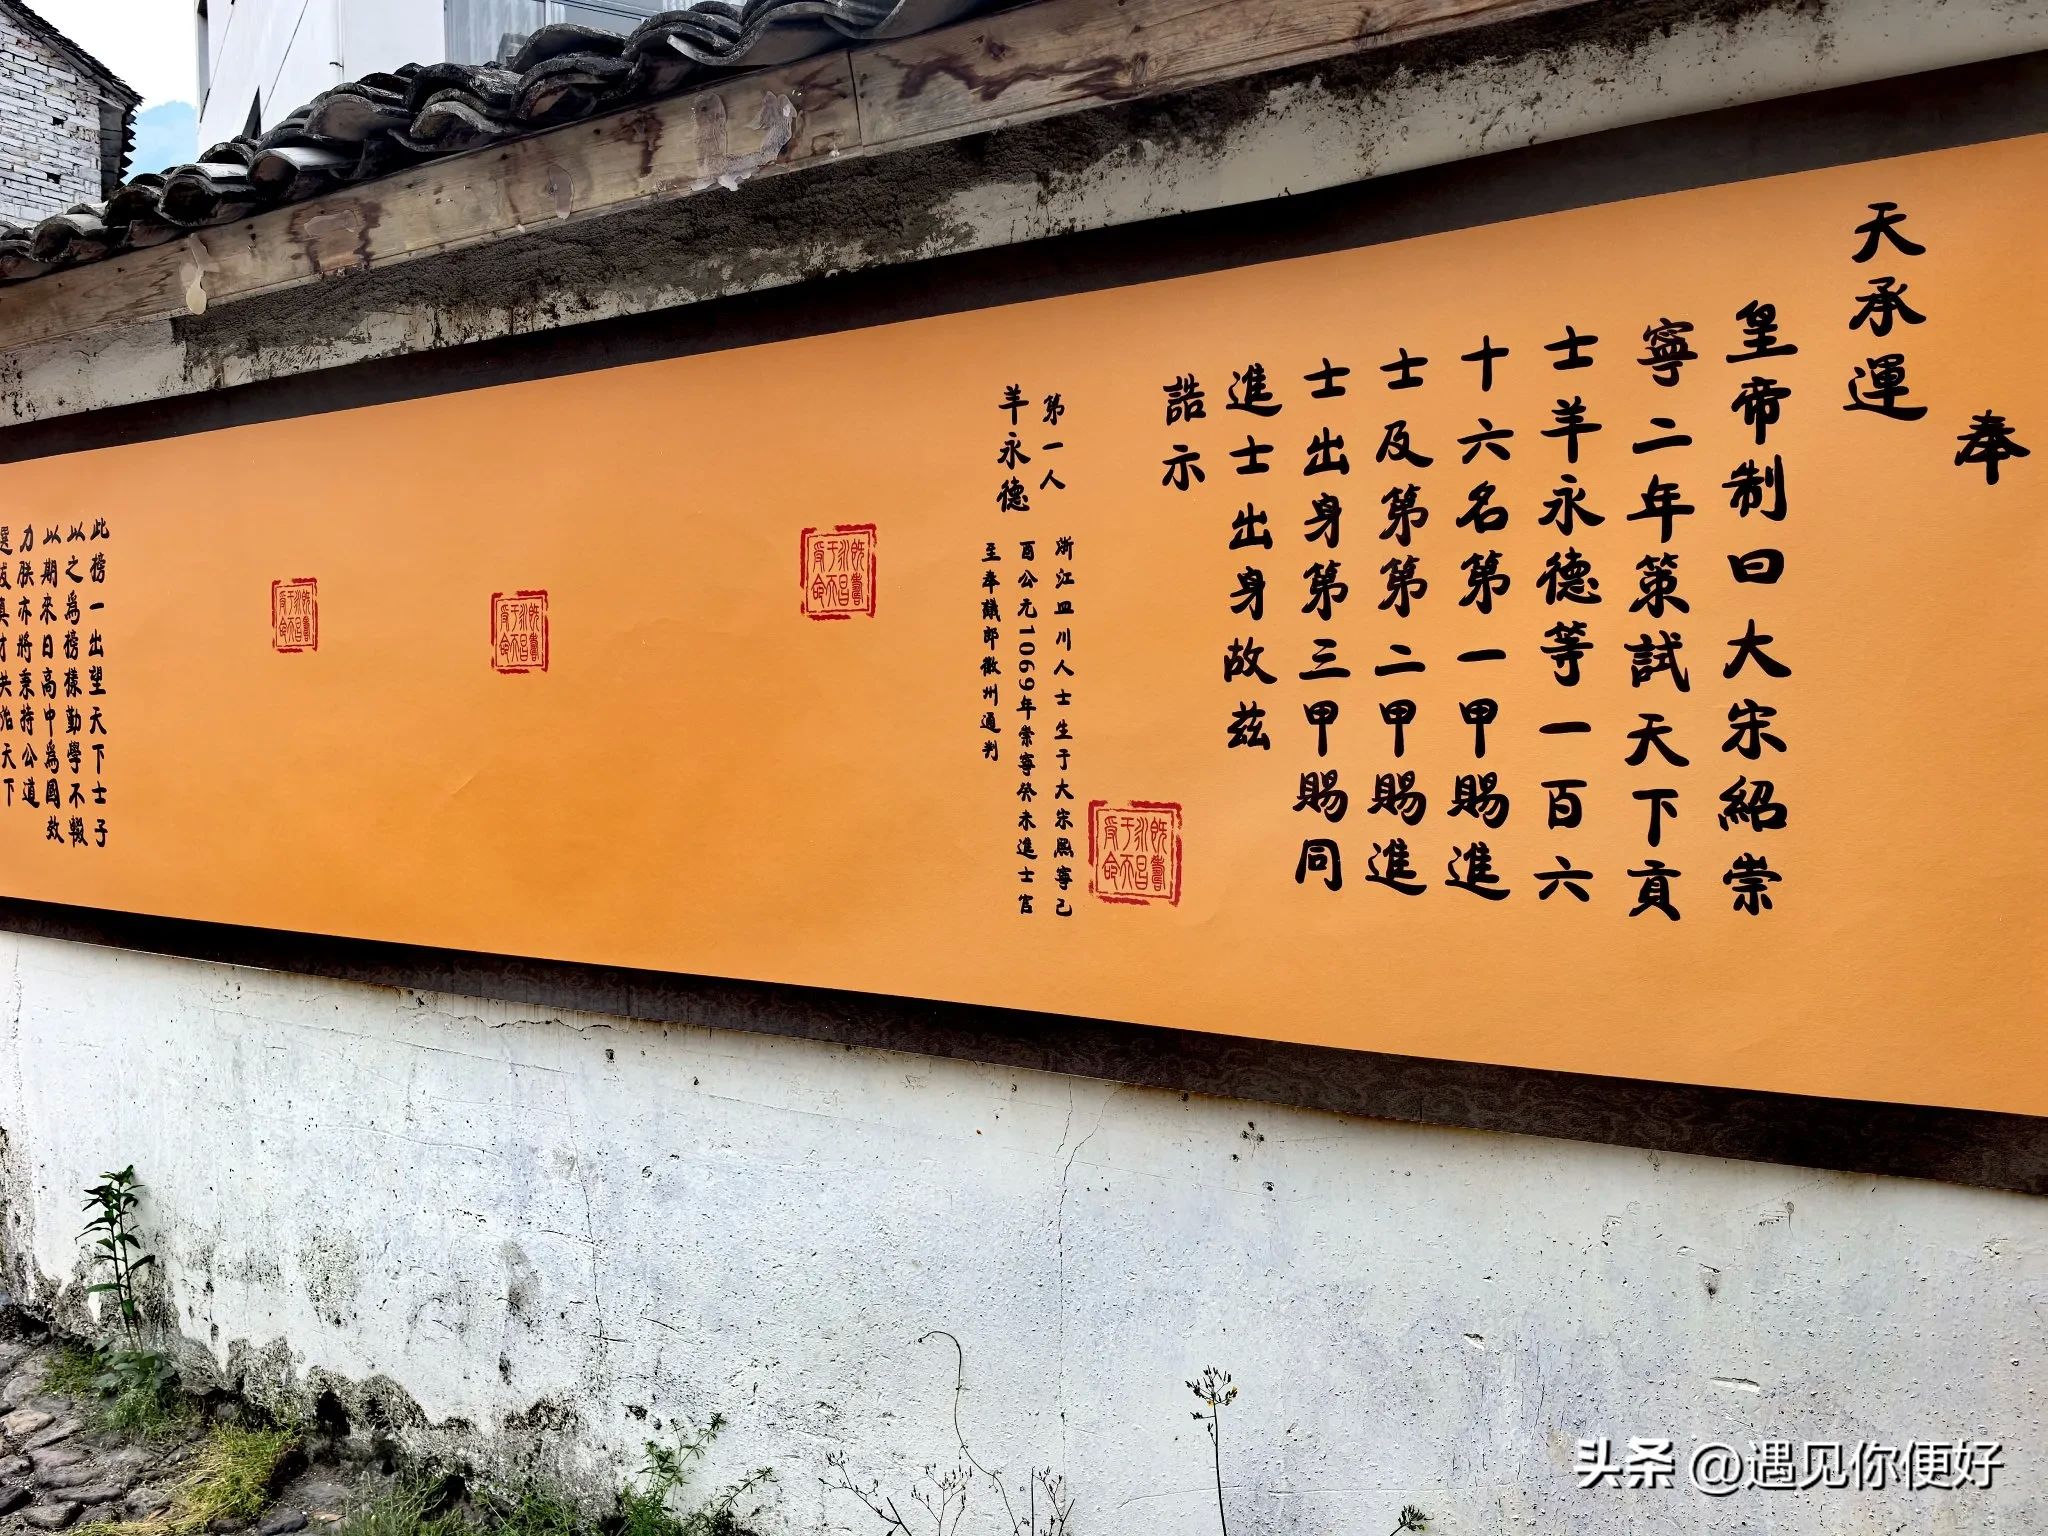 奉
天承運
皇帝制曰大宋紹崇
寧二年策試天下貢
士羊永德等一百六
十六名第一甲賜進
士及第第二甲賜進
士出身第三甲賜同
進士出身故茲
誥示
第一人
羊永德
浙江四川人士生于大宋熙寧己
酉公元1069年崇寧癸未進士官
至奉議郎徽州通判
此榜一出望天下士子
以之為榜樣勤學不輟
以期來日高中為國效
力朕亦將秉持公道
選拔真才共治天下
受命于天既壽永昌
受命于天既壽永昌
受命于天既壽永昌
受命于天既壽永昌
头条 @遇见你便好